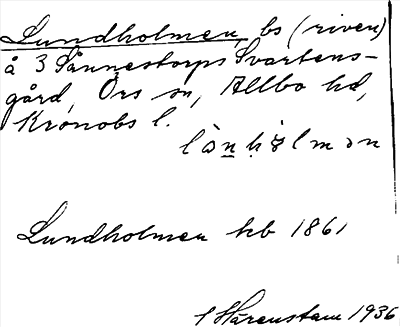 Lundholmen, bs (riven)
å 3 Sånnestorps Svartens-
gård, Örs sn, Allbo hd,
Kronobs l.
Lundholmen hb 1861
Hårenstam 1936